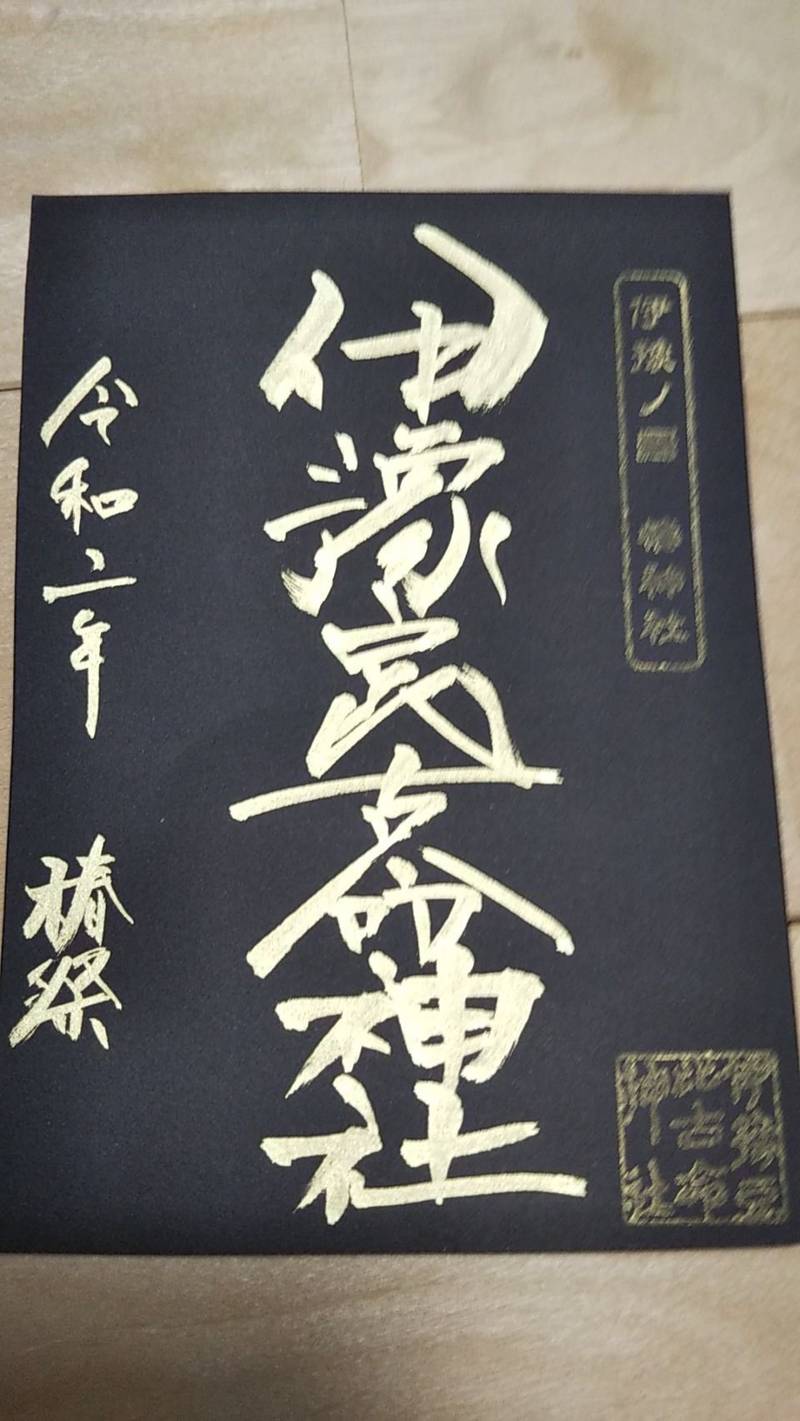 伊豫ノ國 椿神社
伊豫豆
比古命
神社
伊豫豆比古命神社
令和二年 椿祭